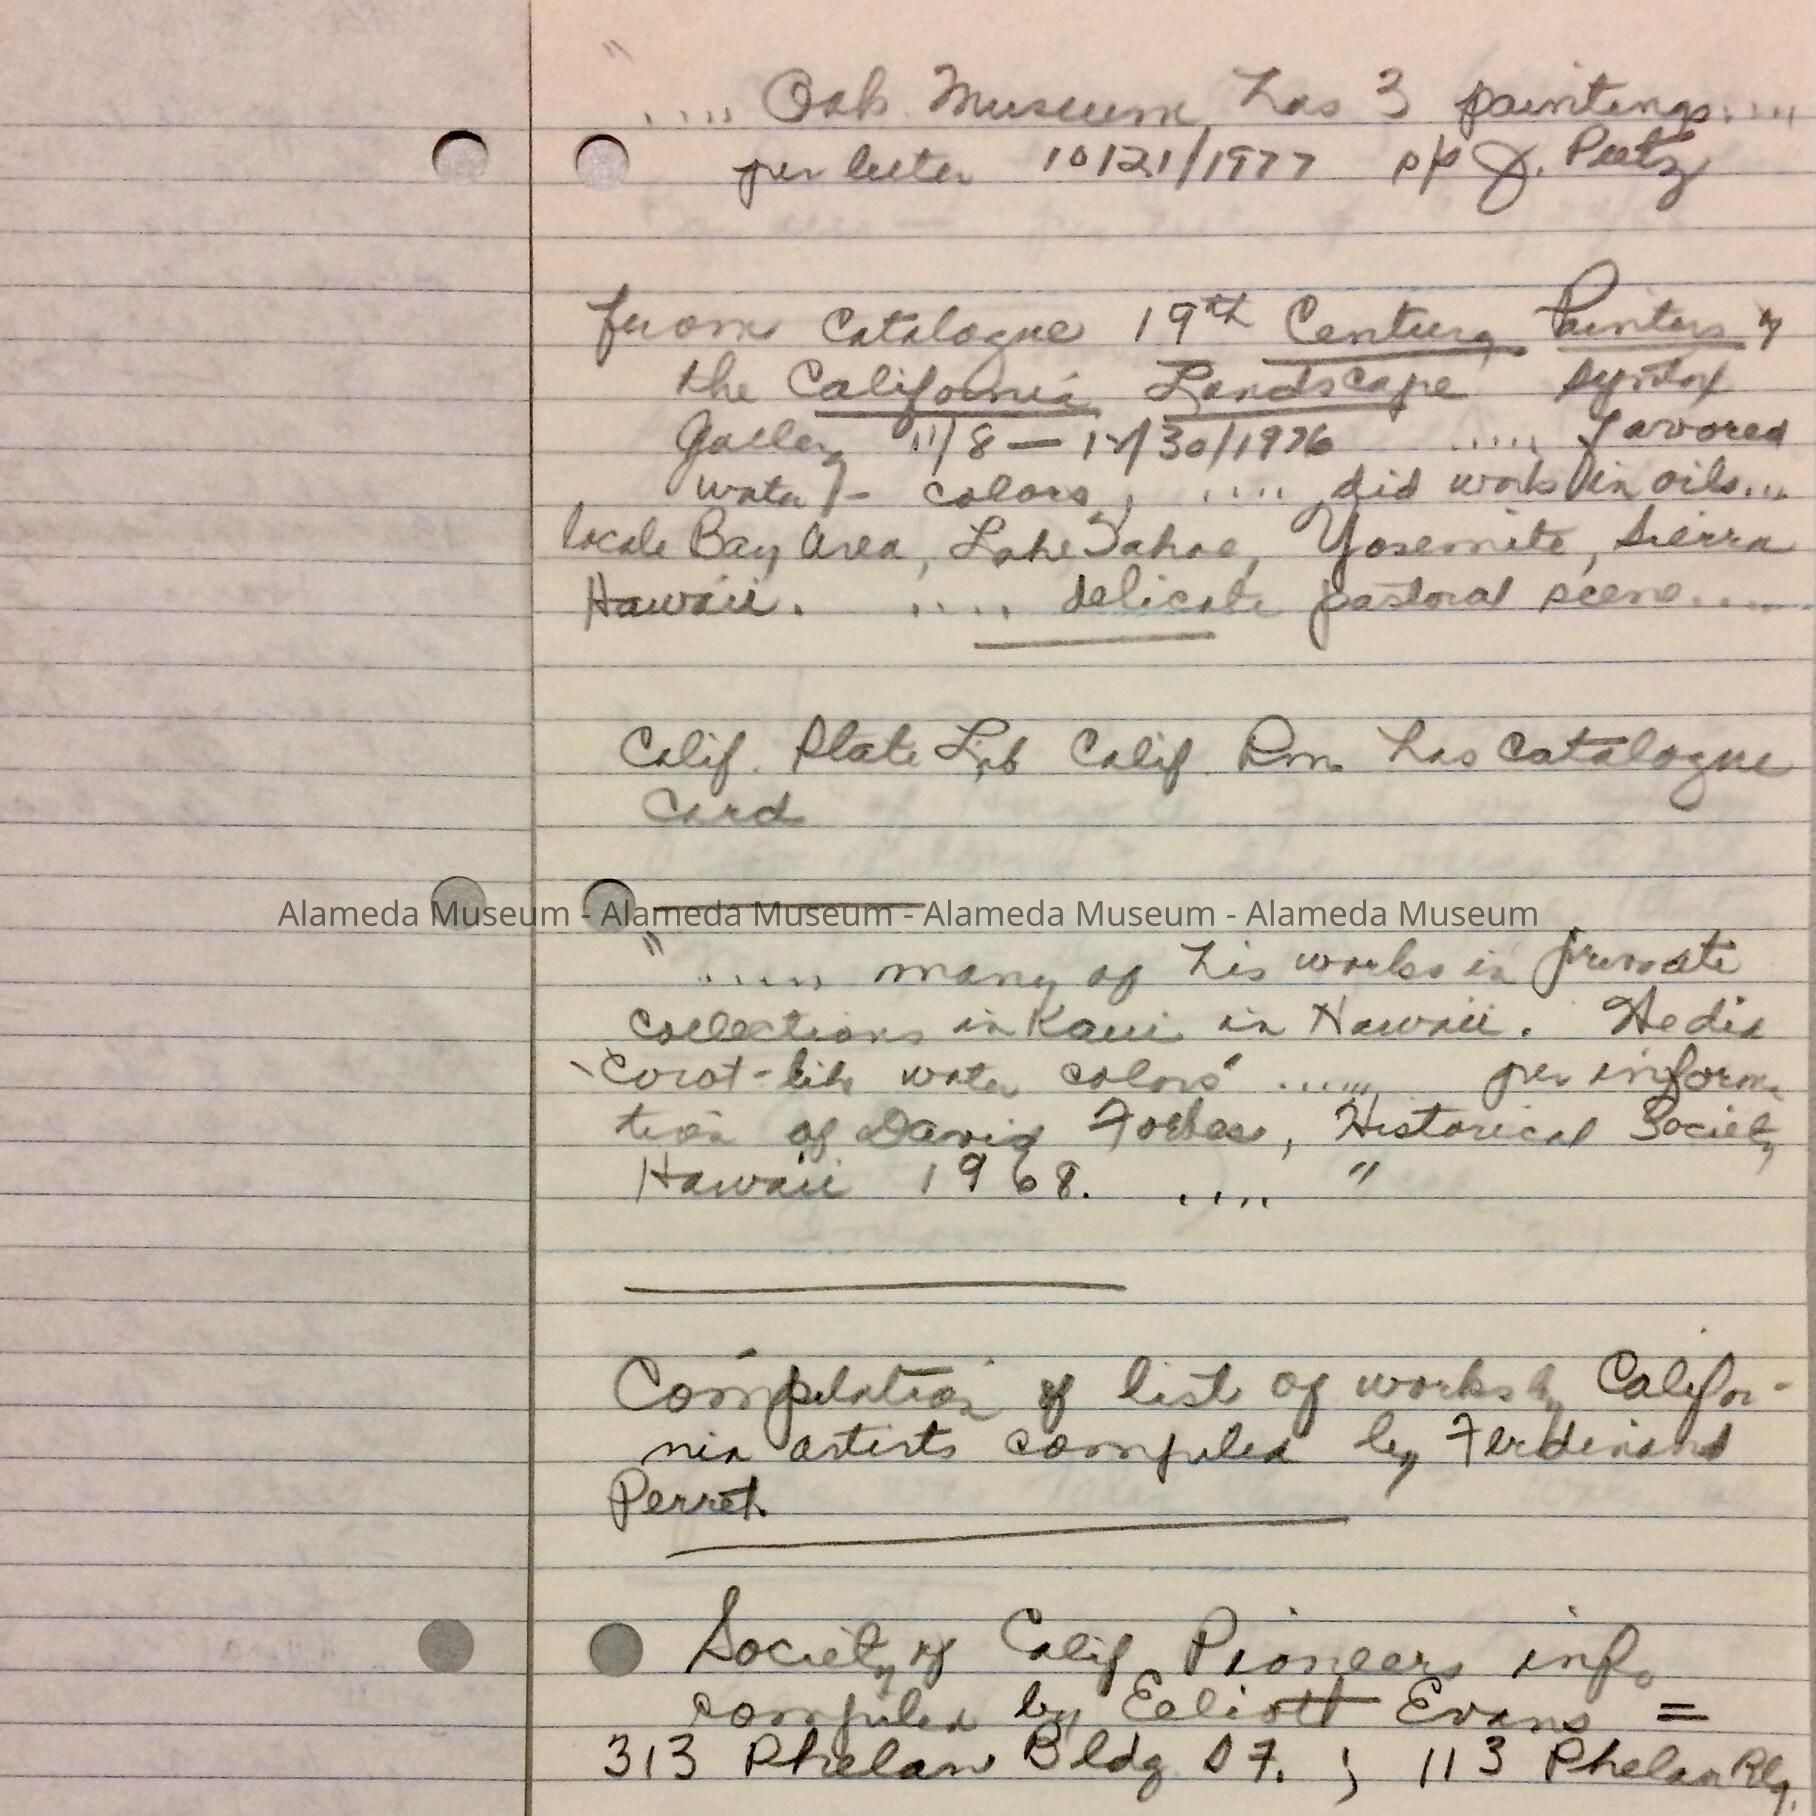 " .... Oak Museum has 3 paintings ....
per letter 10/21/1977 p/p J. Peetz
from Catalogue 19th Century Painters of
the California Landscape
Galley 11/8 — 12/30/1976 ..... favored
water - colors, .... did work in oils...
locale Bay Area, Lake Tahoe, Yosemite, Sierra
Hawaii. .... delicate pastoral scene.....
Calif. State Lib Calif. Rm. has catalogue
card
Alameda Museum - Alameda Museum - Alameda Museum - Alameda Museum
" ..... many of his works in private
collections in Kaui in Hawaii. He did
'Corot-like water colors' ...... per informa
tion of David Forbes, Historical Society
Hawaii 1968. .... "
Compilation of list of works by Califor-
nia artists compiled by Ferdinand
Perret.
Society of Calif Pioneers info
compiled by Elliott Evans =
313 Phelan Bldg S F. ; 113 Phelan Blg.